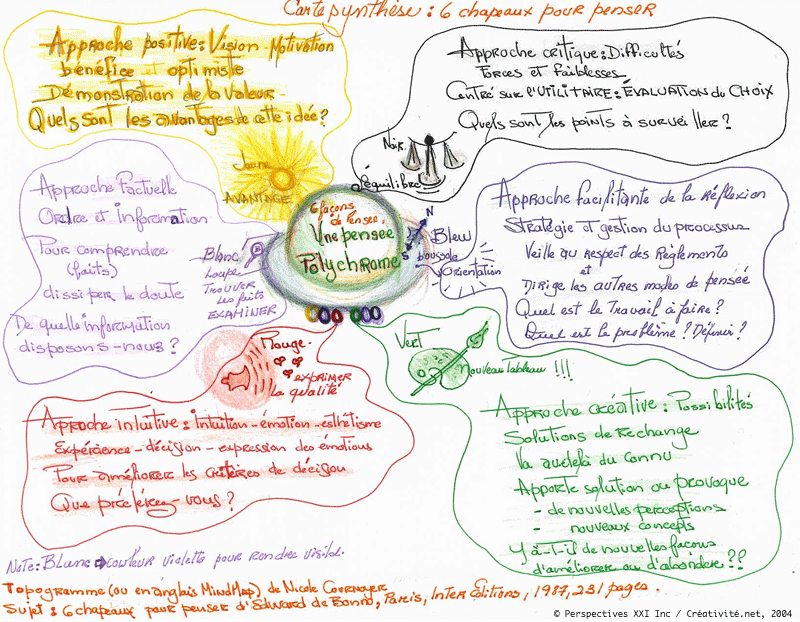 Carte synthèse : 6 chapeaux pour penser
Approche positive : Vision Motivation
bénéfice et optimiste
Démonstration de la valeur
Quels sont les avantages de cette idée ?
Jaune
AVANTAGE
Approche critique : Difficultés
Forces et faiblesses
Centré sur l'UTILITAIRE : ÉVALUATION du CHOIX
Quels sont les points à surveiller ?
Noir
l'équilibre
Approche Factuelle
Ordre et Information
Pour comprendre
(faits)
dissiper le doute
De quelle information
disposons-nous ?
Blanc
Loupe
Trouver
les faits
EXAMINER
6 façons
de Pensée.
Une pensée
Polychrome
N
S
Bleu
boussole
Orientation
Approche facilitante de la réflexion
Stratégie et gestion du processus
Veille au respect des Règlements
et
Dirige les autres modes de pensée
Quel est le Travail à faire ?
Quel est le problème ? Définir ?
Rouge
exprimer
la qualité
Approche intuitive : Intuition - émotion - esthétisme
Expérience - décision - expression des émotions
Pour améliorer les critères de décision
Que préférez-vous ?
Vert
Nouveau Tableau !!!
Approche créative : Possibilités
Solutions de Rechange
Va au delà du connu
Apporte solution ou provoque
- de nouvelles perceptions
- nouveaux concepts
Y a-t-il de nouvelles façons
d'améliorer ou d'aborder ??
Note : Blanc → couleur violette pour rendre visible.
Topogramme (ou en anglais MindMap) de Nicole
Sujet : 6 chapeaux pour penser d'Edward de Bono, Paris, Inter Editions, 1987, 231 pages.
© Perspectives XXI Inc / Créativité.net, 2004